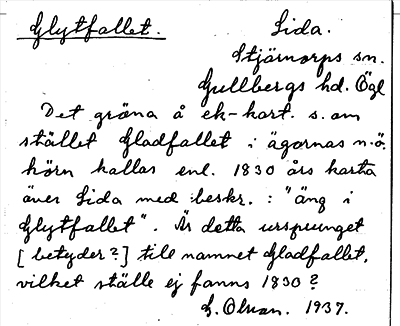 Glytfallet. Lida.
Stjärnorps sn.
Gullbergs hd. Ögl
Det gröna å ek-kart. s. om
stället Gladfallet i ägornas n.ö.
hörn kallas enl. 1830 års karta
över Lida med beskr. : "äng i
Glytfallet". Är detta ursprunget
[betyder?] till namnet Gladfallet,
vilket ställe ej fanns 1830?
G. Olson. 1937.